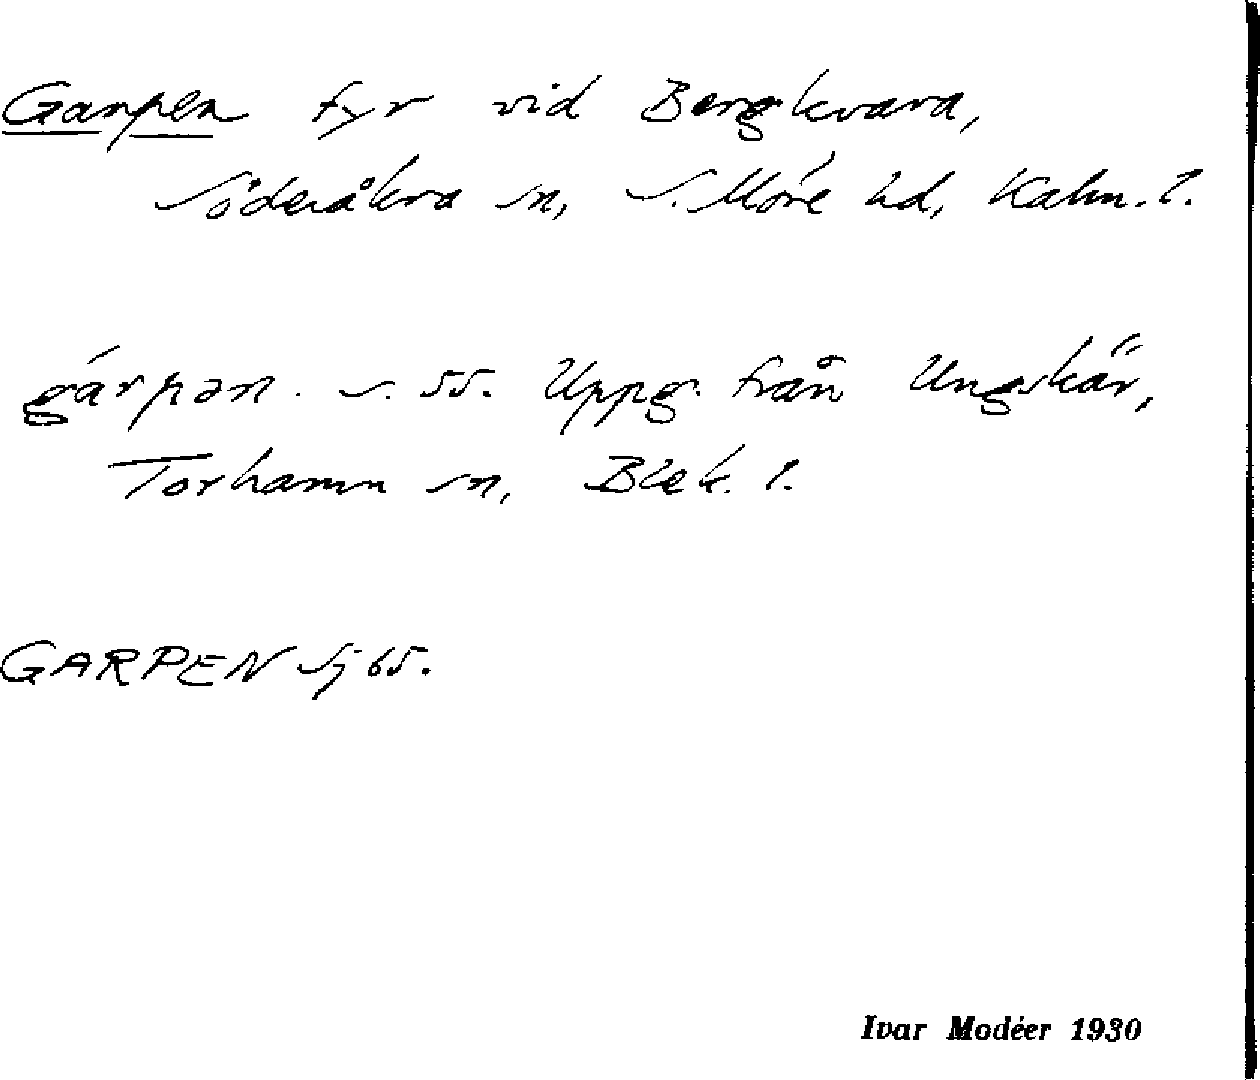 Garpen fyr vid Bergkvara,
Söderåkra sn, S. Möre hd, Kalm. l.
gárpən. s. 55. Uppg. från Ungskär,
Torhamn sn, Blek. l.
GARPEN Sj 65.
Ivar Modéer 1930